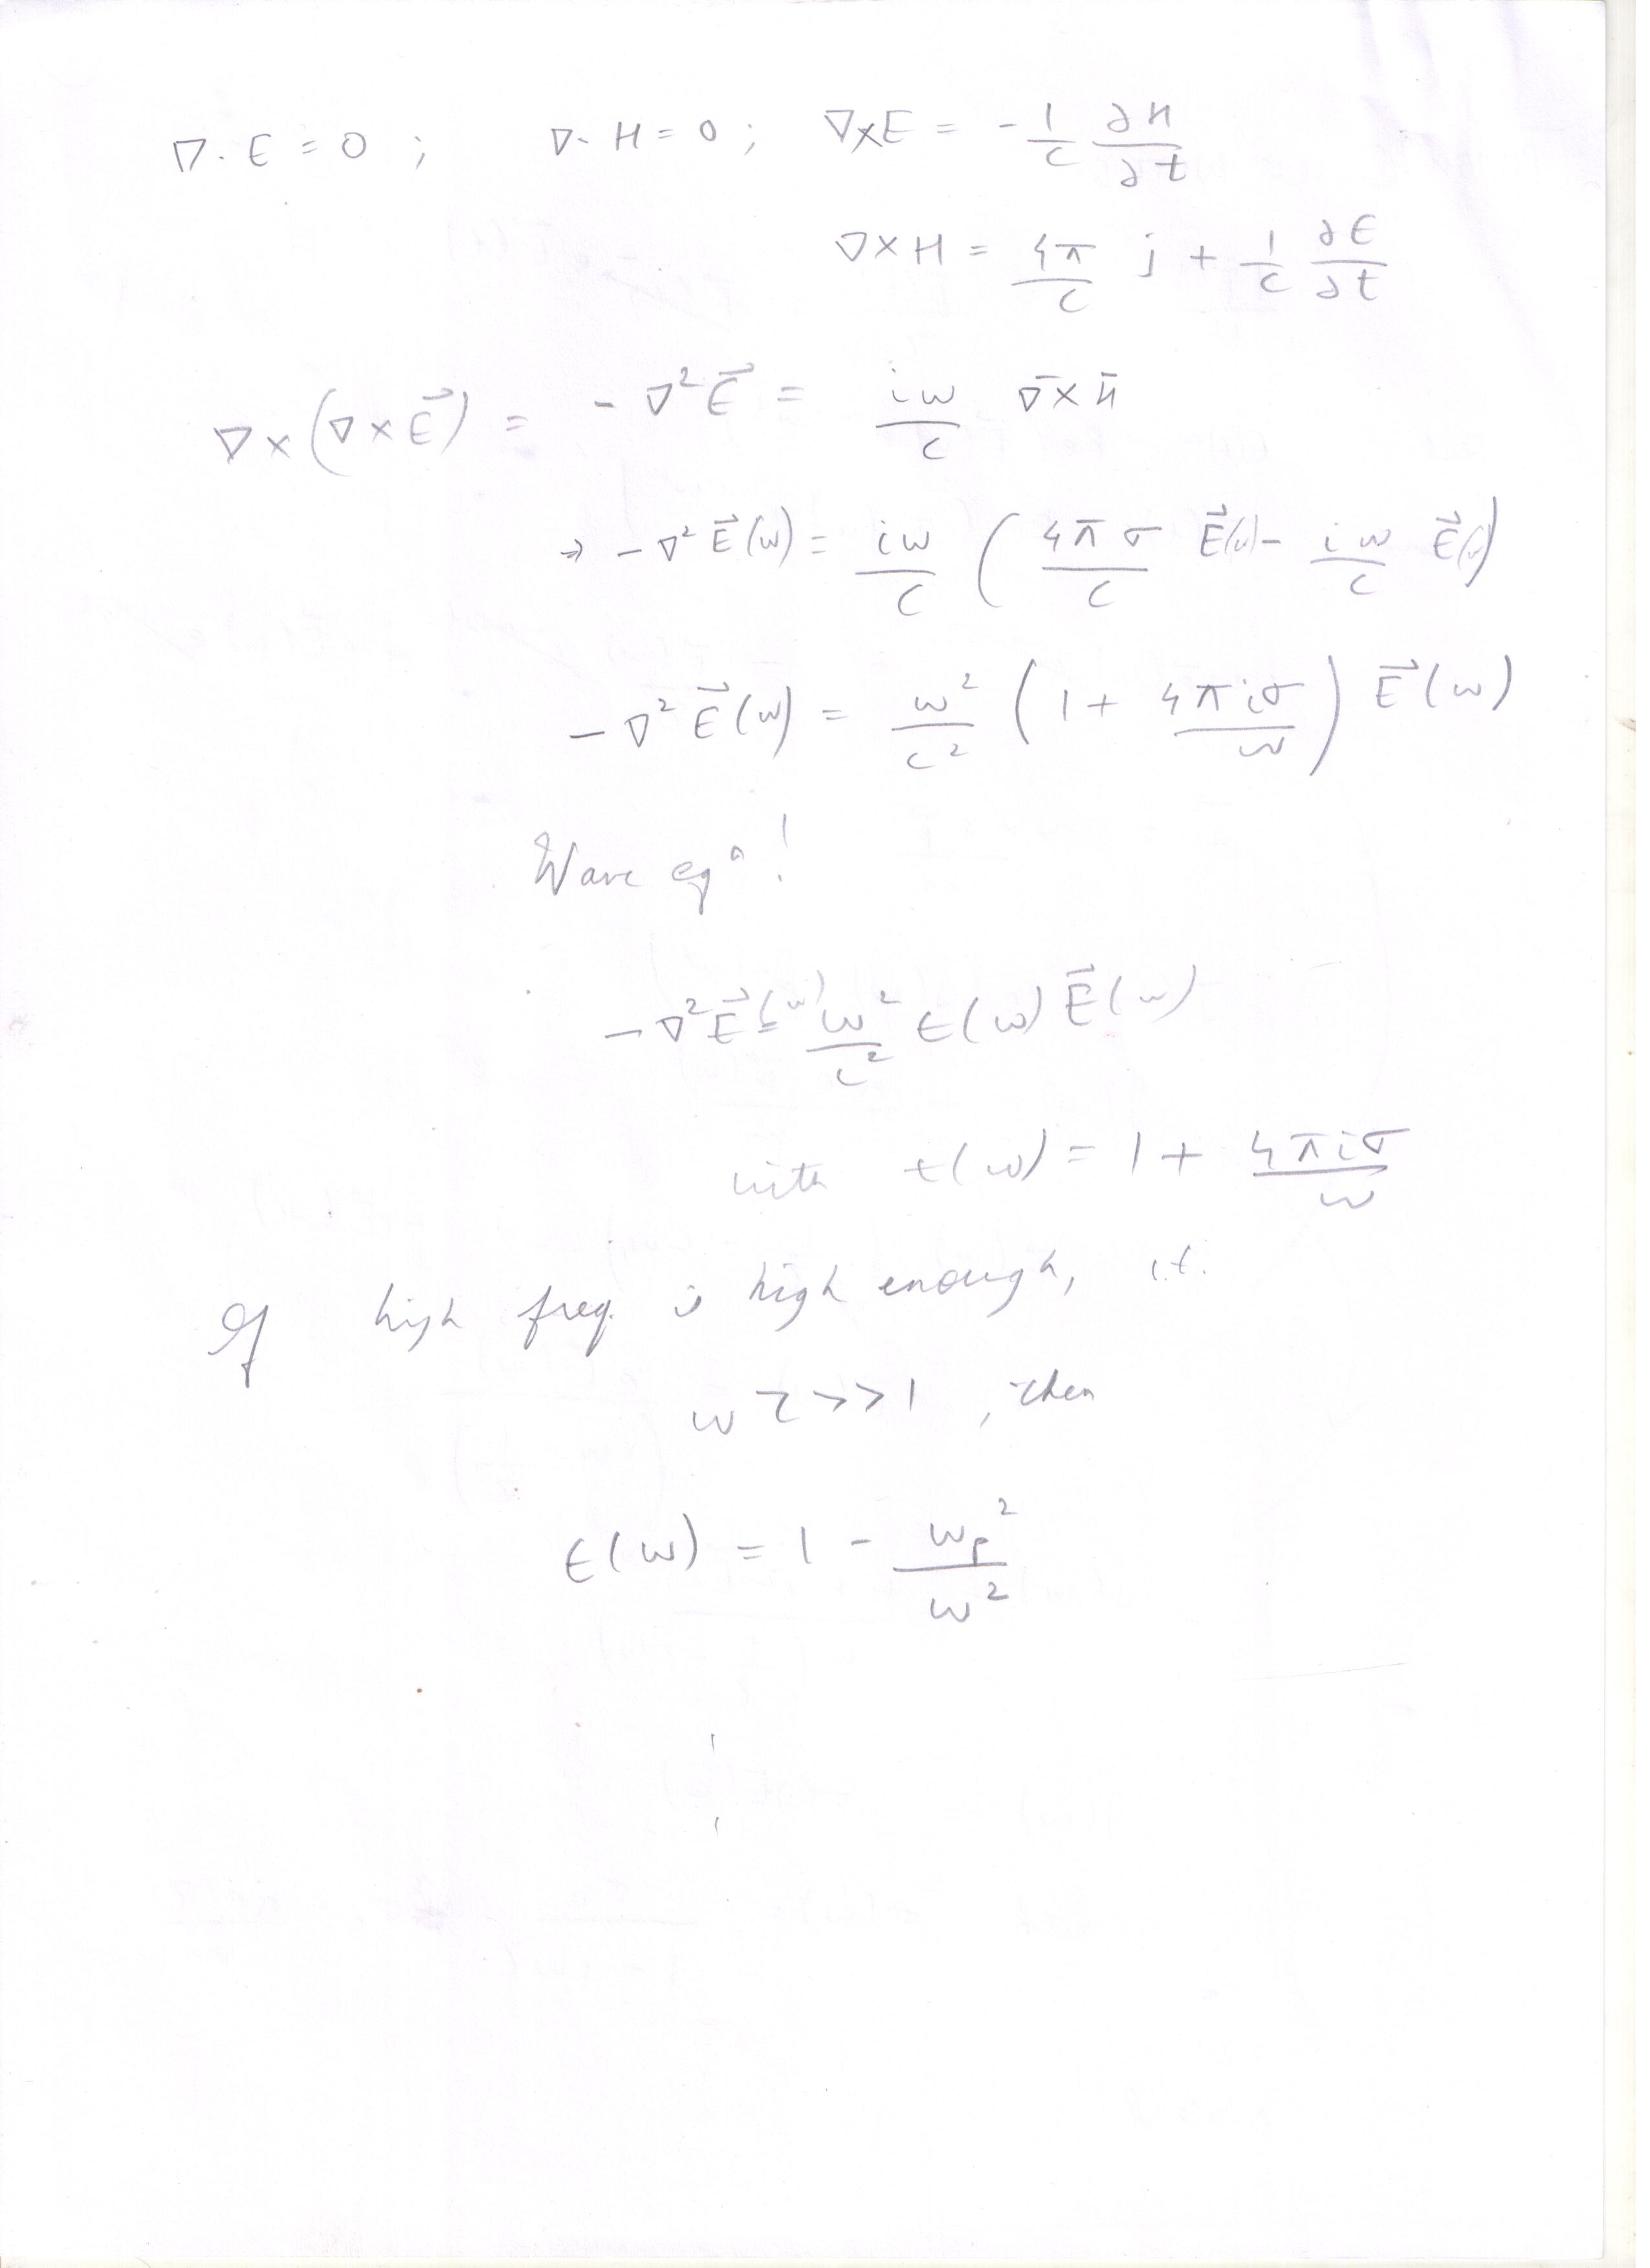 ∇. E = 0 ; ∇. H = 0 ; ∇×E = - 1/c ∂H/∂t
∇×H = 4π/c j + 1/c ∂E/∂t
∇×(∇×E⃗) = - ∇²E⃗ = iω/c ∇̄×H̄
⇒ -∇² E⃗(ω) = iω/c ( 4πσ/c E⃗(ω) - iω/c E⃗(ω) )
-∇² E⃗(ω) = ω²/c² ( 1 + 4πiσ/ω ) E⃗(ω)
Wave eqⁿ!
-∇²E⃗(ω) = ω²/c² ϵ(ω) E⃗(ω)
with ϵ(ω) = 1 + 4πiσ/ω
If high freq. is high enough, i.e.
ωτ >> 1 , then
ϵ(ω) = 1 - ωp²/ω²